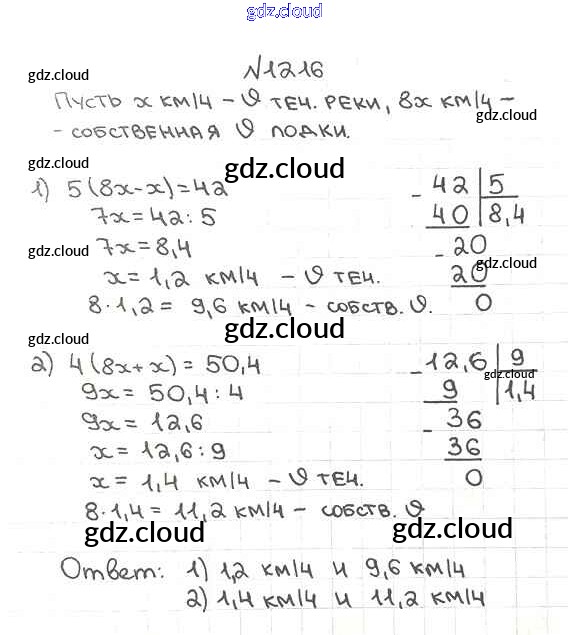 gdz.cloud
№1216
gdz.cloud
Пусть x км/ч – v теч. реки, 8x км/ч –
gdz.cloud
– собственная v лодки.
gdz.cloud
1) 5(8x-x)=42
7x=42:5
7x=8,4
x=1,2 км/ч – v теч.
8·1,2= 9,6 км/ч – собств. v.
- 42 | 5
40 | 8,4
gdz.cloud
- 20
20
0
gdz.cloud
gdz.cloud
gdz.cloud
gdz.cloud
2) 4(8x+x)= 50,4
9x= 50,4:4
9x= 12,6
x= 12,6:9
x= 1,4 км/ч – v теч.
8·1,4= 11,2 км/ч – собств. v
- 12,6 | 9
gdz.cloud
9 | 1,4
- 36
36
0
gdz.cloud
gdz.cloud
Ответ: 1) 1,2 км/ч и 9,6 км/ч
2) 1,4 км/ч и 11,2 км/ч